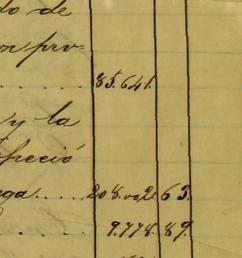 do de
on pro-
..... 85.641.
y la
especió
ega..... 208.002 63.
..... 9.778. 89.